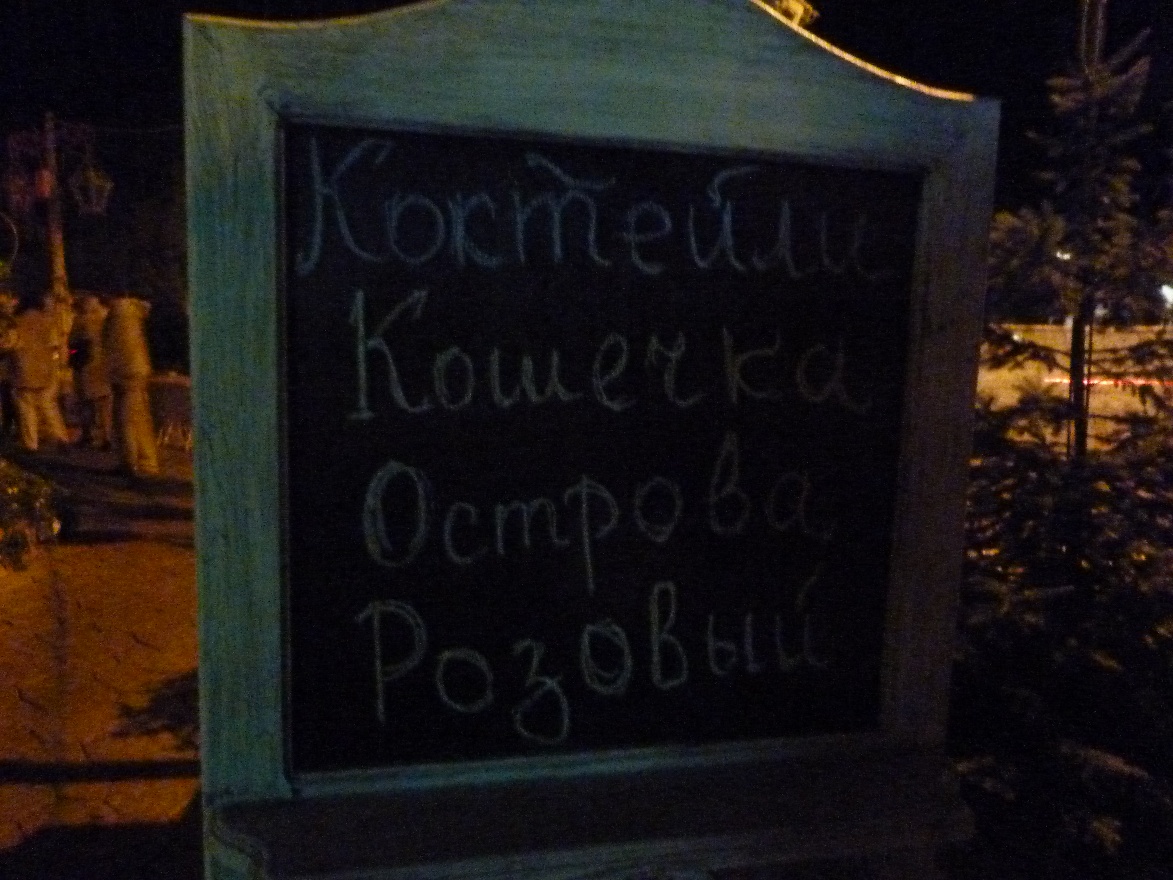 Коктейли
Кошечка
Острова
Розовый